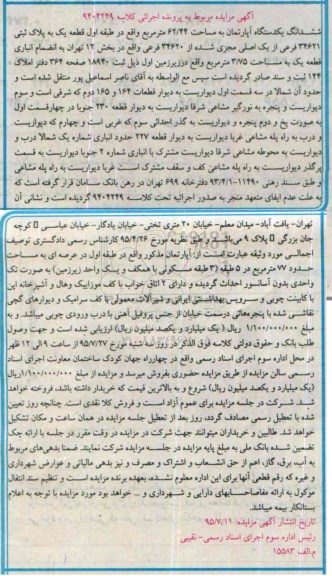 آگهی مزایده مربوط به پرونده اجرائی کلاسه ۹۴۰۴۲۴۹
ششدانگ یکدستگاه آپارتمان به مساحت ۶۲/۴۴ مترمربع واقع در طبقه اول قطعه یک به پلاک ثبتی
۳۴۶۲۱ فرعی از یک اصلی مجزی شده از ۳۴۶۲۰ فرعی واقع در بخش ۱۲ تهران به انضمام انباری
قطعه یک به مساحت ۳/۷۵ مترمربع واقع درزیرزمین اول ذیل ثبت ۱۸۹۴۰ صفحه ۳۶۴ دفتر املاک
۱۴۴ ثبت و سند صادر گردیده است سپس مع الواسطه به آقای ناصر اسماعیل پور منتقل شده است و
حدود آن شمالا در سه قسمت اول دیواریست به دیوار قطعات ۱۶۴ و ۱۶۵ دوم که شرقی است و سوم
دیواریست و پنجره به نورگیر مشاعی شرقا دیواریست به دیوار قطعه ۲۳۰ جنوبا در چهارقسمت اول
به صورت پخ و دوم پنجره و دیواریست به گذر احداثی سوم که غربی است و چهارم که دیواریست
و درب به راه پله مشاعی غربا دیواریست به دیوار قطعه ۲۲۷ حدود انباری شماره یک شمالا درب و
دیواریست به محوطه مشاعی شرقا دیواریست مشترک با انباری شماره ۲ جنوبا دیواریست به قسمت
پرگذار دیواریست به راه پله مشاعی کف و سقف مشترک است غربا دیواریست به راه پله مشاعی
و طبق سند رهنی ۱۱۴۹۰-۹۳/۴/۱ دفترخانه ۶۹۹ تهران در رهن بانک سامان قرار گرفته است که
به علت عدم ایفای متعهد منجر به صدور اجرائیه تحت کلاسه ۹۴۰۴۲۴۹ گردیده است و نشانی آن
تهران- یافت آباد- میدان معلم- خیابان ۲۰ متری تختی- خیابان یادگار- خیابان عباسی کوچه
جان بزرگی پلاک ۹ می باشد و طبق نظریه مورخ ۹۵/۴/۲۶ کارشناس رسمی دادگستری توصیف
اجمالی مورد وثیقه عبارت است از: آپارتمان مذکور واقع در طبقه اول در عرصه ای به مساحت
حدود ۷۷ مترمربع در ۵ طبقه (۳ طبقه مسکونی با همکف و یسک واحد زیرزمین) به صورت تک
واحدی بدون آسانسور احداث گردیده و دارای ۲ اتاق خواب با کف موزاییک وهال و آشپزخانه این
با کابینت چوبی و سرویس بهداشتی ایرانی و شیرآلات معمولی با کف سرامیک و دیوارهای گچی
نقاشی شده با پنجره‌هایی درسمت خیابان از جنس پروفیل آهنی با درب ورودی چوبی میباشد. و به
مبلغ ۱/۱۰۰/۰۰۰/۰۰۰ ریال (یک میلیارد و یکصد میلیون ریال) ارزیابی شده است و جهت وصول
طلب بانک و حقوق دولتی کلاسه فوق الذکر در روز سه شنبه مورخ ۹۵/۷/۲۷ از ساعت ۹ الی ۱۲ ظهر
در محل اداره سوم اجرای اسناد رسمی واقع در چهارراه جهان کودک ساختمان معاونت اجرای اسناد
رسمی سالن مزایده از طریق مزایده حضوری بفروش میرسد و مزایده از مبلغ ۱/۱۰۰/۰۰۰/۰۰۰ریال
(یک میلیارد و یکصد میلیون ریال) شروع و به بالاترین قیمت که خریدار داشته باشد، فروخته خواهد
شد. شرکت در جلسه مزایده برای عموم آزاد است و فروش کلا نقدی است. چنانچه روز تعیین
شده با تعطیل رسمی مصادف گردد، روز بعد از تعطیل جلسه مزایده در همان ساعت و مکان تشکیل
خواهد شد. طالبین و خریداران میتوانند جهت شرکت در مزایده در وقت مقرر در جلسه با ارائه چک
تضمین شده بانک ملی به مبلغ پایه مزایده در جلسه مزایده شرکت نمایند. ضمنا بدهی‌های مربوط
به آب، برق، گاز، اعم از حق انشعاب و اشتراک و مصرف و نیز بدهی مالیاتی و عوارض شهرداری
و غیره که رقم قطعی آنها برای این اداره معلوم نشده، بعهده برنده مزایده است و تنظیم سند انتقال
موکول به ارائه مفاصاحسابهای دارایی و شهرداری و ... خواهد بود مورد مزایده با توجه به اعلام
بستانکار بیمه میباشد.
تاریخ انتشار آگهی مزایده: ۹۵/۷/۱۱
رئیس اداره سوم اجرای اسناد رسمی- نقیبی
م.الف ۱۵۵۸۳